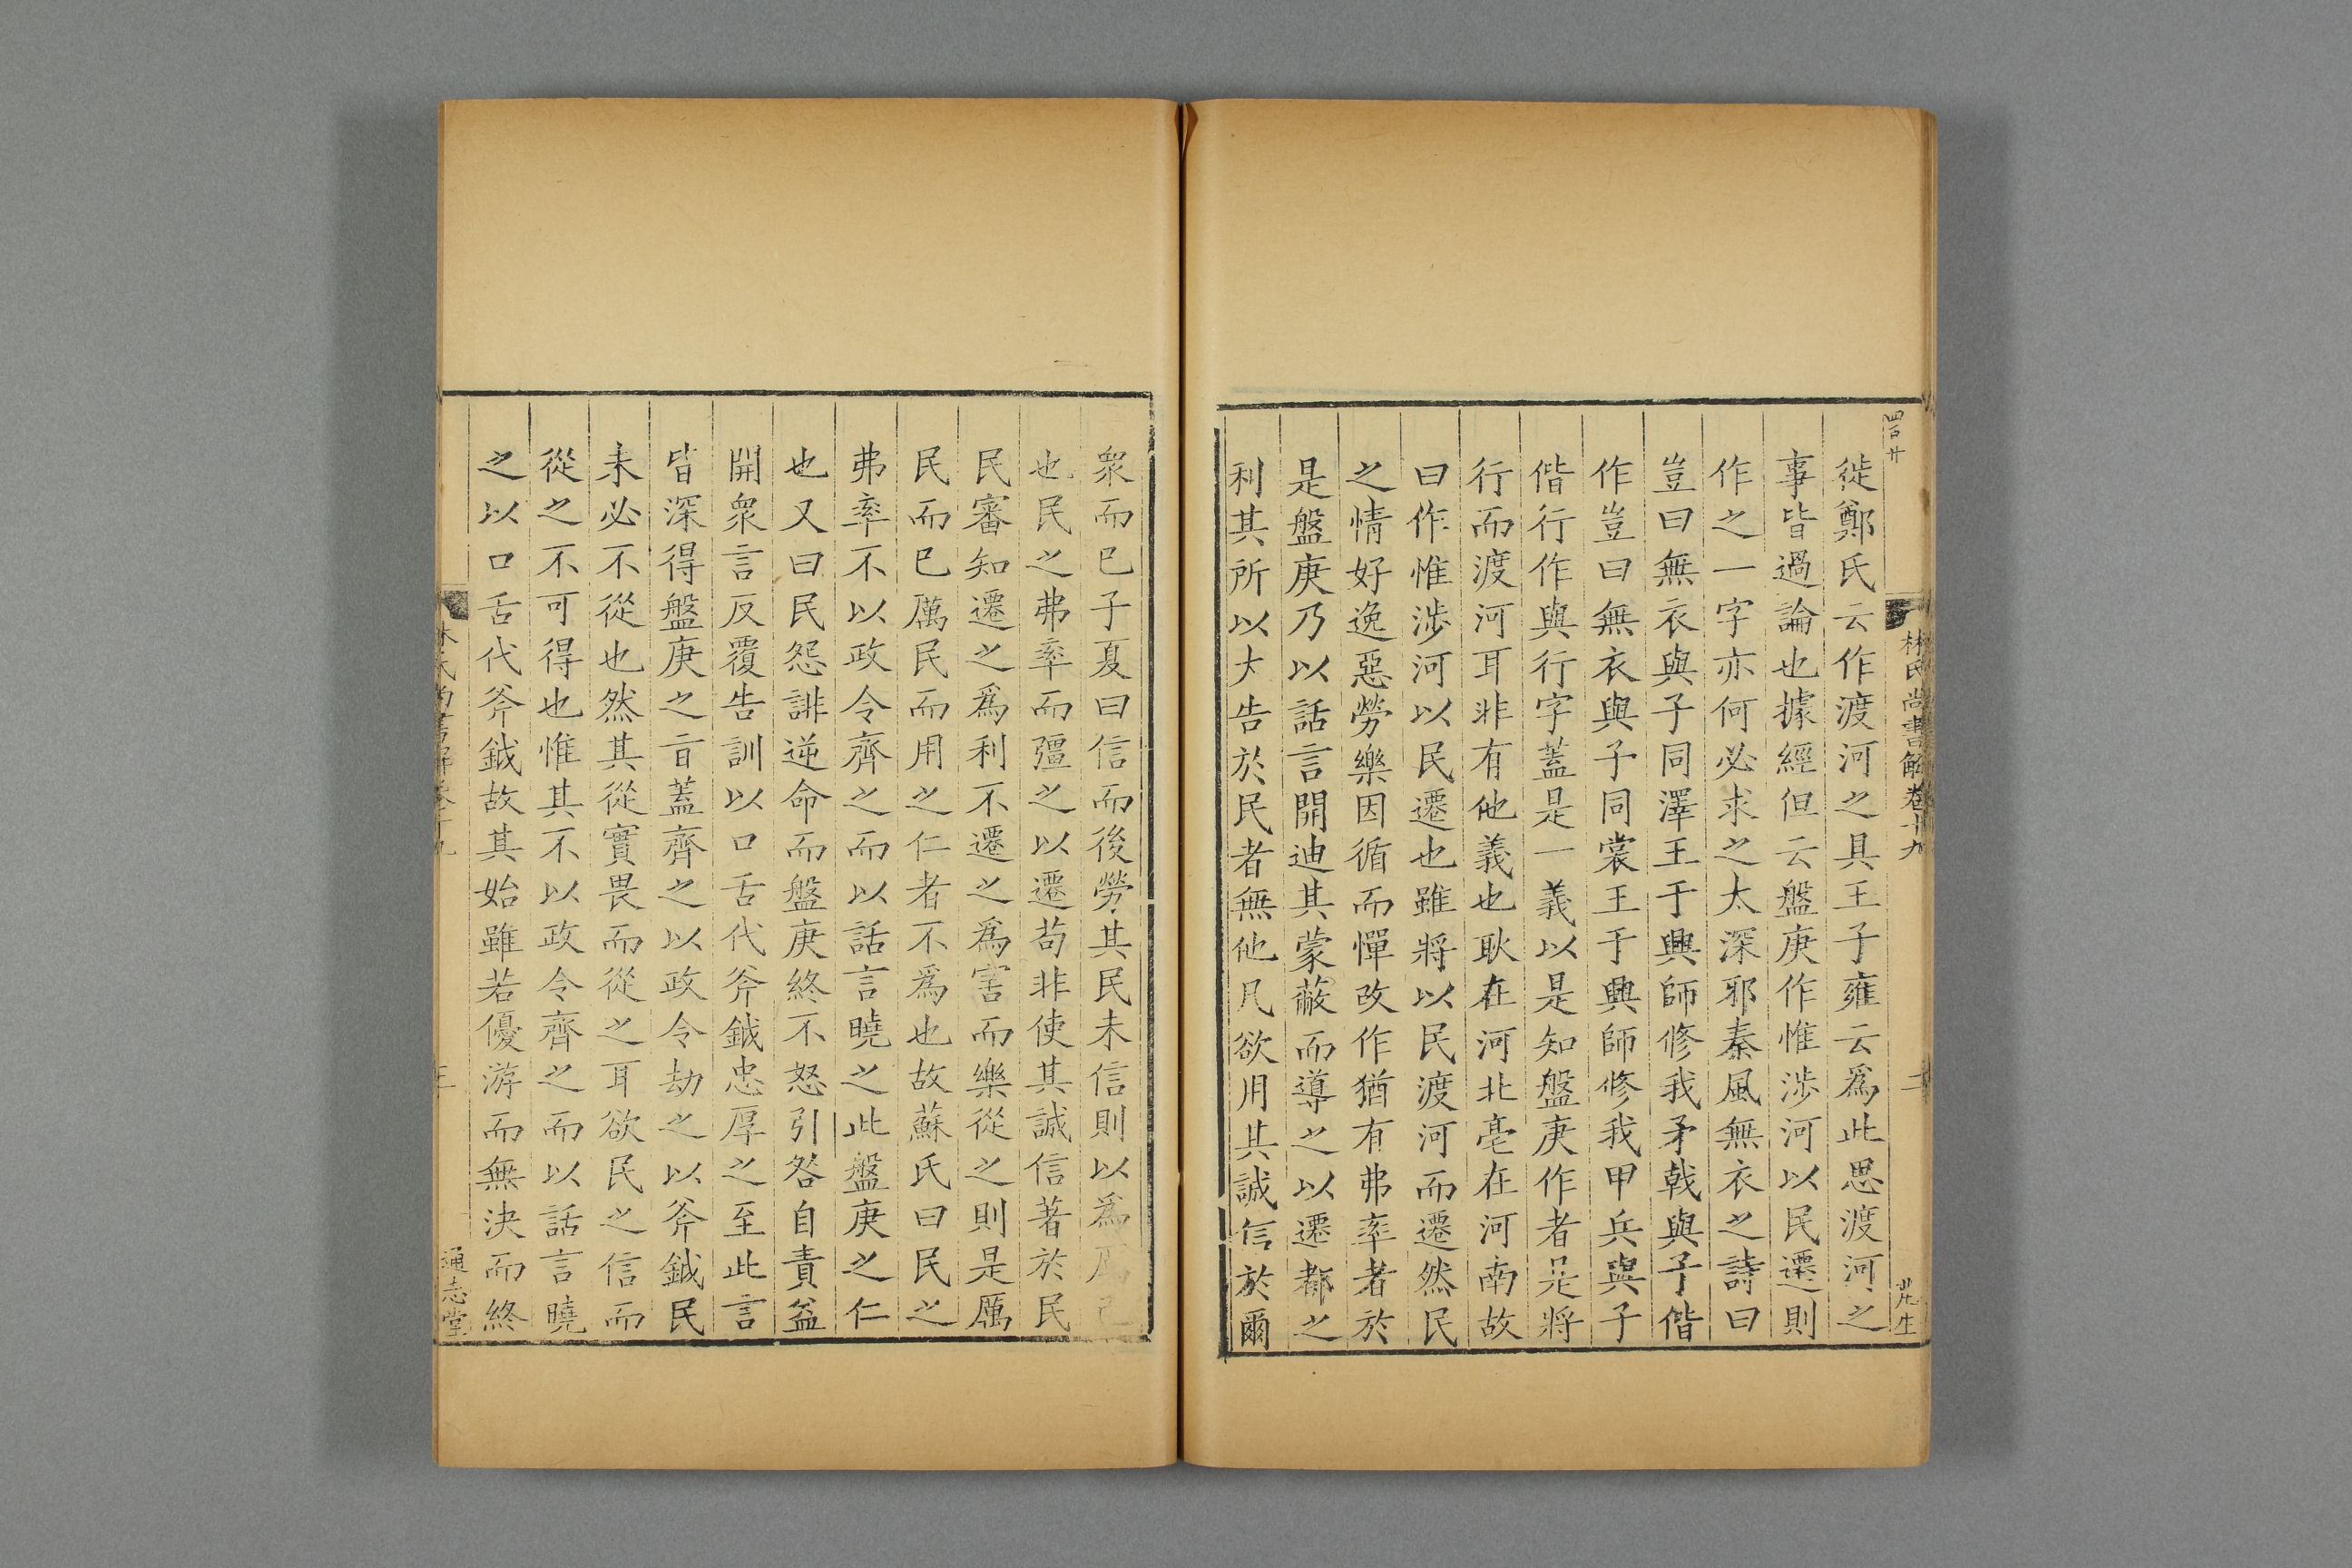 四百廿
林氏尚書解卷十九
二
徙鄭氏云作渡河之具王子雍云爲此思渡河之
事皆過論也據經但云盤庚作惟涉河以民遷則
作之一字亦何必求之太深邪秦風無衣之詩曰
豈曰無衣與子同澤王于興師修我矛戟與子偕
作豈曰無衣與子同裳王于興師修我甲兵與子
偕行作與行字蓋是一義以是知盤庚作者是將
行而渡河耳非有他義也耿在河北亳在河南故
曰作惟涉河以民遷也雖將以民渡河而遷然民
之情好逸惡勞樂因循而憚改作猶有弗率者於
是盤庚乃以話言開迪其蒙蔽而導之以遷都之
利其所以大告於民者無他凡欲用其誠信於爾
衆而已子夏曰信而後勞其民未信則以爲厲己
也民之弗率而彊之以遷苟非使其誠信著於民
民審知遷之爲利不遷之爲害而樂從之則是厲
民而已厲民而用之仁者不爲也故蘇氏曰民之
弗率不以政令齊之而以話言曉之此盤庚之仁
也又曰民怨誹逆命而盤庚終不怒引咎自責益
開衆言反覆告訓以口舌代斧鉞忠厚之至此言
皆深得盤庚之旨蓋齊之以政令劫之以斧鉞民
未必不從也然其從實畏而從之耳欲民之信而
從之不可得也惟其不以政令齊之而以話言曉
之以口舌代斧鉞故其始雖若優游而無決而終
通志堂